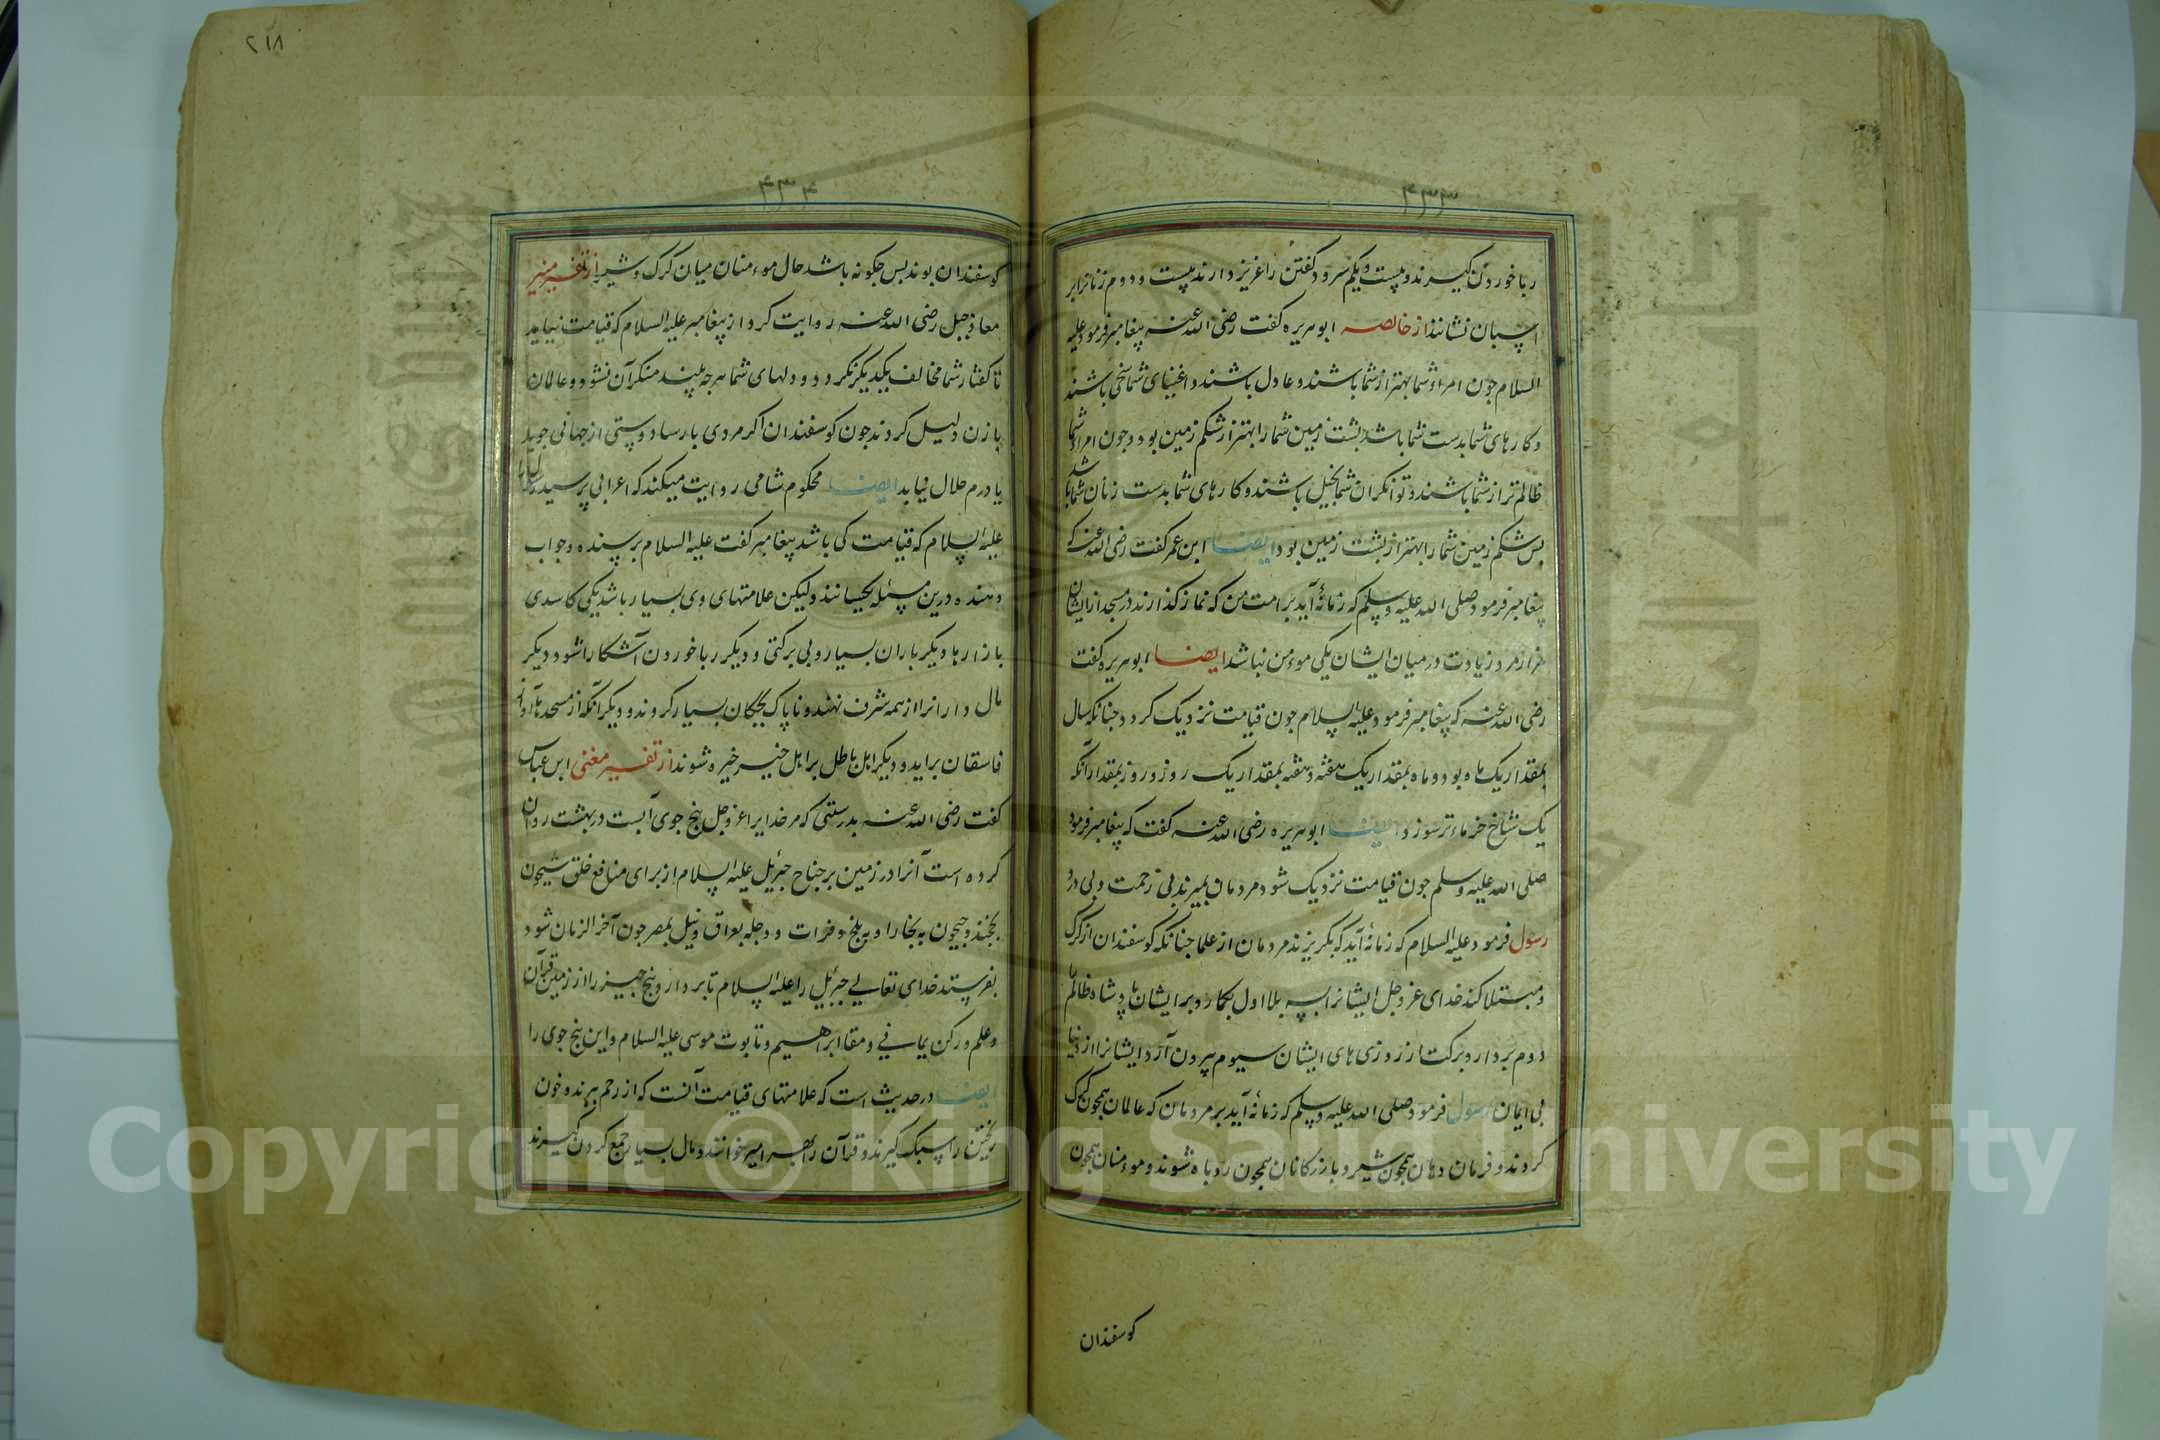 ۴۳۳
ربا خوردن کیرند و بیست و یکم سرود کفتن را عزیز دارند بیست و دوم زنانرا بر
اسپان نشانند از خالصه ابوهریره کفت رضی الله عنه پیغامبر فرمود علیه
السلام جون امراء شما بهتر از شما باشند و عادل باشند و اغنیای شما سخی باشند
و کارهای شما بدست شما باشد بشت زمین شما را بهتر از شکم زمین بود و جون امراء شما
ظالم تر از شما باشند و توانکران شما بخیل باشند و کارهای شما بدست زنان شما باشد
بس شکم زمین شما را بهتر از بشت زمین بود ایضا ابن عمر کفت رضی الله عنه که
پیغامبر فرمود صلی الله علیه وسلم که زمانهٔ آید بر امت من که نماز کذارند در مسجد از ایشان
هزار مرد زیادت در میان ایشان یکی مومن نباشد ایضا ابوهریره کفت
رضی الله عنه که پیغامبر فرمود علیه السلام جون قیامت نزدیک کردد جنانکه سال
بمقدار یک ماه بود و ماه بمقدار یک هفته و هفته بمقدار یک روز و روز بمقدار آنکه
یک شاخ خرماء تر سوزد ایضا ابوهریره رضی الله عنه کفت که پیغامبر فرمود
صلی الله علیه وسلم جون قیامت نزدیک شود مردمان بمیرند بی زحمت و بی درد
رسول فرمود علیه السلام که زمانهٔ آید که بکریزند مردمان از علما جنانکه کوسفندان از کرک
و مبتلا کند خدای عز و جل ایشانرا بسه بلا اول بکمارد بر ایشان پادشاه ظالم
دوم بردارد برکت از روزی های ایشان سیوم بیرون آرد ایشانرا از دنیا
بی ایمان رسول فرمود صلی الله علیه وسلم که زمانهٔ آید بر مردمان که عالمان همجون کرک
کردند و فرمان دهان همجون شیر و بازرکانان همجون روباه شوند و مومنان همجون
کوسفندان
۲۱۸
۴۳۴
کوسفندان بوند بس جکونه باشد حال مومنان میان کرک و شیر از تفسیر منیر
معاذ جبل رضی الله عنه روایت کرد از پیغامبر علیه السلام که قیامت نیاید
تا کفتار شما مخالف یکدیکر نکردد و دلهای شما هرجه بیند منکر آن نشود و عالمان
با زن دلیل کردند جون کوسفندان اکر مردی بارسا دوستی از جهانی جوید
یا درم حلال نیابد ایضا مکحوم شامی روایت میکند که اعرابی پرسید رسول را
علیه السلام که قیامت کی باشد پیغامبر کفت علیه السلام برسنده و جواب
دهنده درین مسئله یکسانند ولیکن علامتهای وی بسیار باشد یکی کاسدی
بازارها و دیکر باران بسیار و بی برکتی و دیکر ربا خوردن آشکارا شود و دیکر
مال دارانرا از همه شرف نهند و ناپاک بجکان بسیار کردند و دیکر آنکه از مسجدها آواز
فاسقان براید و دیکر اهل باطل بر اهل خیر خیره شوند از تفسیر مغنی ابن عباس
کفت رضی الله عنه بدرستی که مر خدایرا عز و جل بنج جوی آبست در بهشت روان
کرده است آنرا در زمین بر جناح جبرئیل علیه السلام از برای منافع خلق سیحون
بخجند و جیحون به بخارا و به بلخ و فرات و دجله بعراق و نیل بمصر جون آخر الزمان شود
بفرستد خدای تعالی جبرئیل را علیه السلام تا بردارد بنج جیز را از زمین قرآن
و علم و رکن یمانی و مقام ابراهیم و تابوت موسی علیه السلام و این بنج جوی را
ایضا در حدیث است که علامتهای قیامت آنست که از رحم ببرند و خون
ریختن را سبک کیرند و قرآن را بهر امیر خوانند و مال بسیار جمع کردن کیرند
Copyright © King Saud University